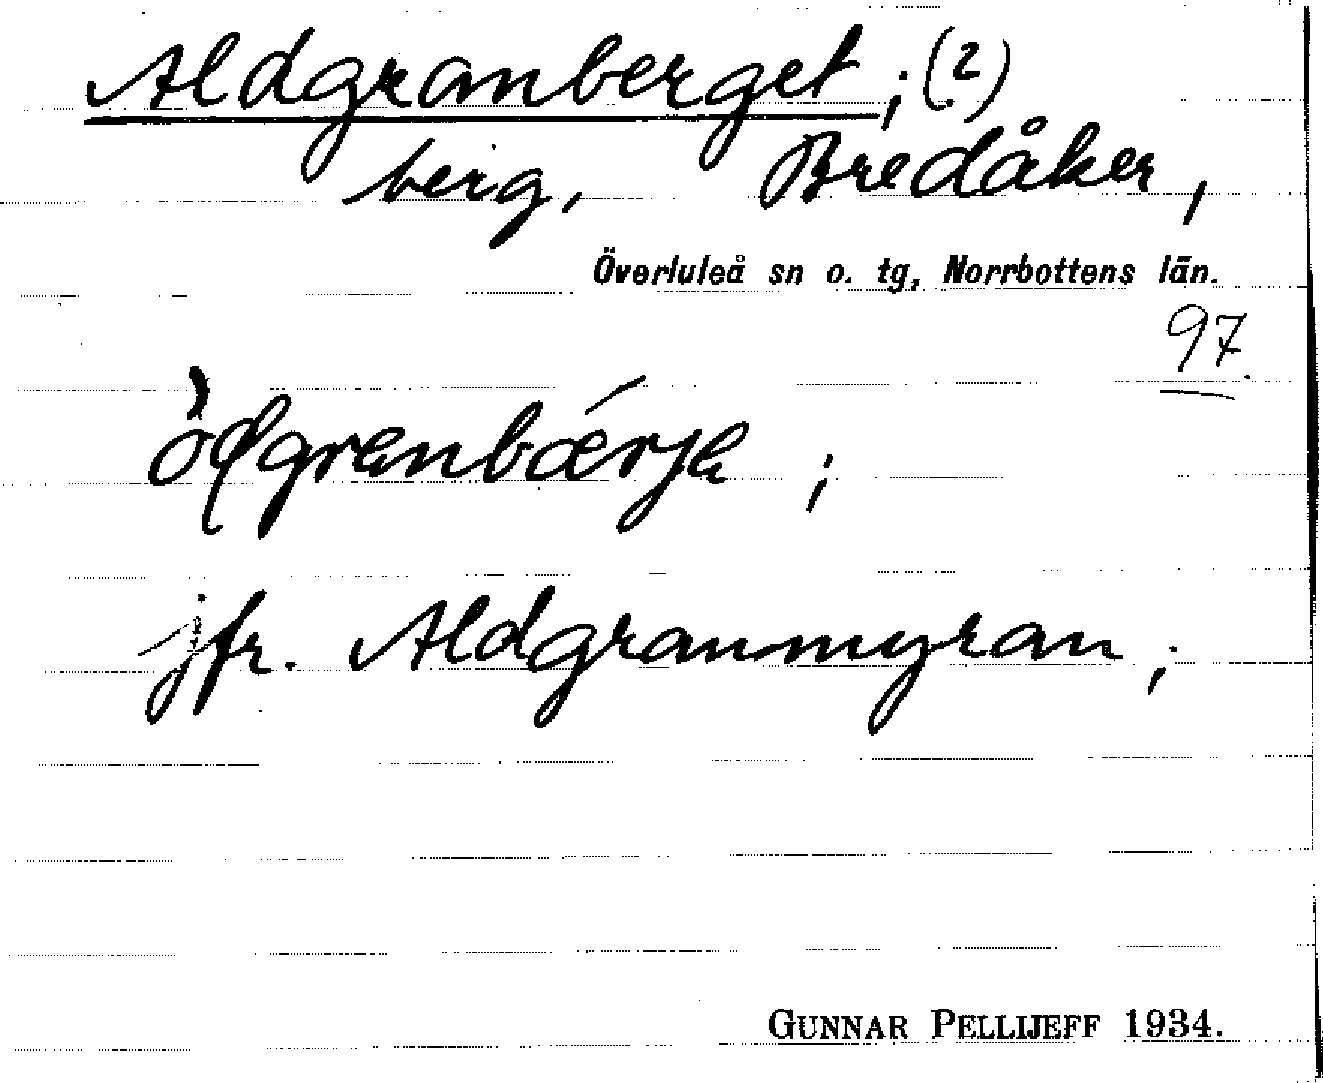 Aldgranberget; (2)
berg, Bredåker,
Överluleå sn o. tg, Norrbottens län.
97.
jfr. Aldgranmyran;
GUNNAR PELLIJEFF 1934.